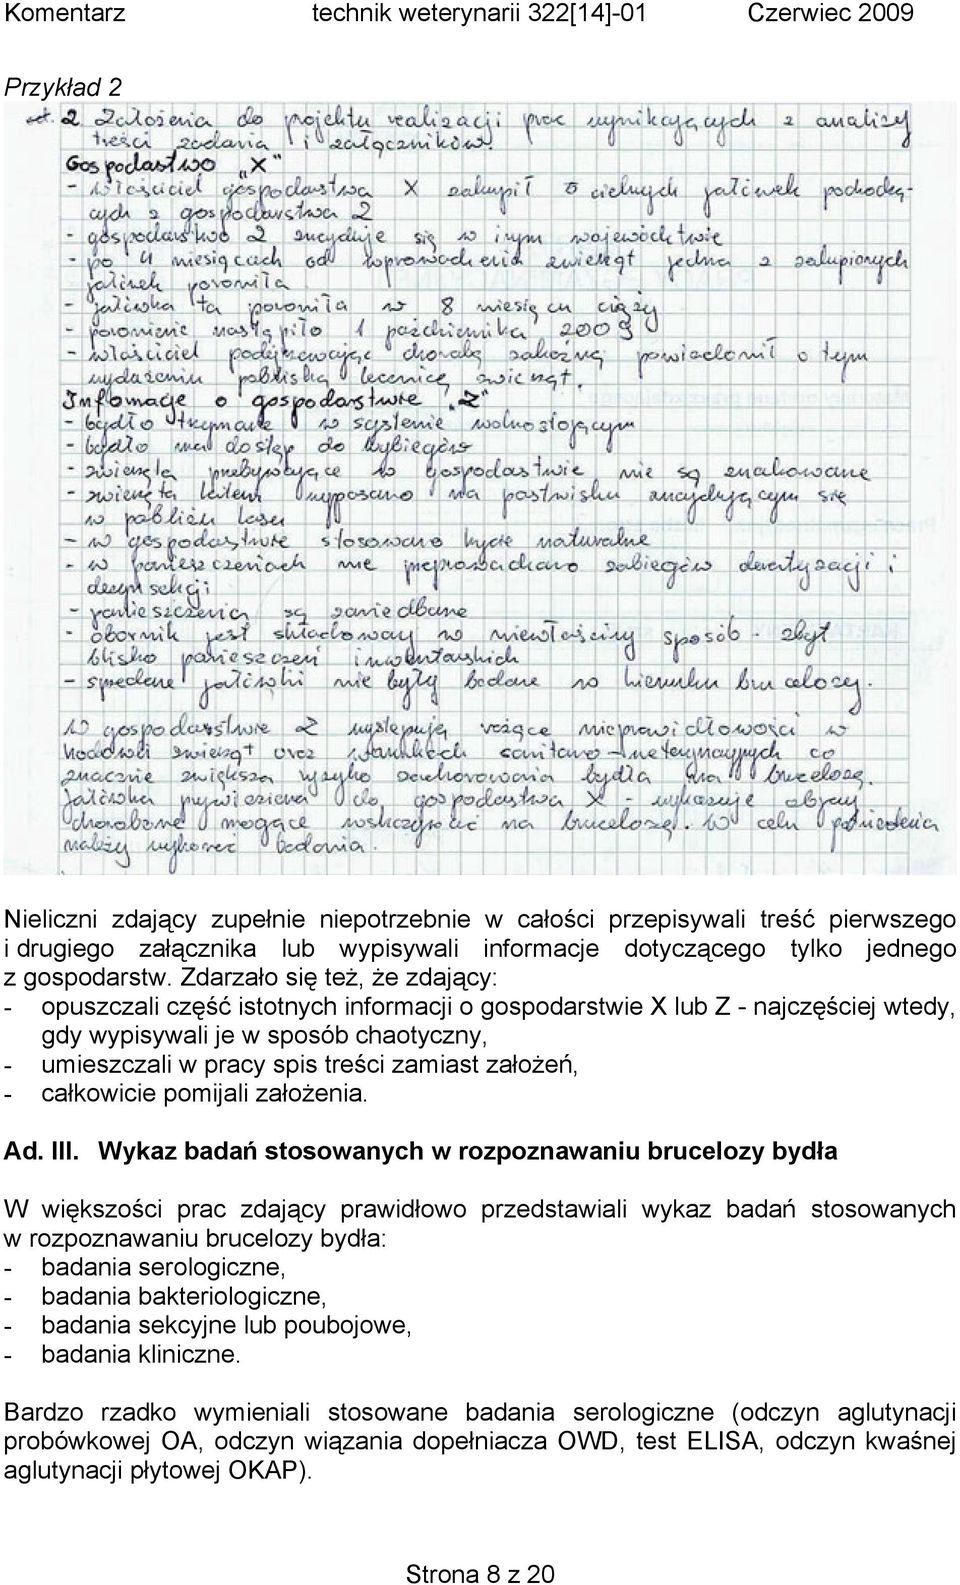 Komentarz technik weterynarii 322[14]-01 Czerwiec 2009
Przykład 2
2 Założenia do projektu realizacji prac wynikających z analizy
treści zadania i załączników.
Gospodastwo „X"
- właściciel gospodarstwa X zakupił 5 cielnych jałówek pochodzą-
cych z gospodarstwa Z
- gospodarstwo Z znajduje się w innym województwie
- po 4 miesiącach od wprowadzenia zwierząt jedna z zakupionych
jałówek poroniła
- jałówka ta poroniła w 8 miesiącu ciąży
- poronienie nastąpiło 1 października 2009
- właściciel podejrzewając chorobę zakaźną powiadomił o tym
wydarzeniu pobliską lecznicę zwierząt.
Infomacje o gospodarstwie „Z"
- bydło trzymane w systemie wolnostojącym
- bydło ma dostęp do wybiegów
- zwierzęta przebywające w gospodastwie nie są znakowane
- zwierzęta latem wypasano na pastwisku znajdującym się
w pobliżu lasu
- w gospodarstwie stosowano krycie naturalne
- w pomieszczeniach nie przeprowadzano zabiegów deratyzacji i
dezynsekcji
- pomieszczenia są zaniedbane
- obornik jest składowany w niewłaściwy sposób - zbyt
blisko pomieszczeń inwentarskich
- sprzedane jałówki nie były badane w kierunku brucelozy.
W gospodarstwie Z występują rażące nieprawidłowości w
hodowli zwierząt oraz warunkach sanitarno-weterynaryjnych co
znacznie zwiększa ryzyko zachorowania bydła na brucelozę.
Jałówka przywieziona do gospodarstwa X - wykazuje objawy
chorobowe mogące wskazywać na brucelozę. W celu potwierdzenia
należy wykonać badania.
Nieliczni zdający zupełnie niepotrzebnie w całości przepisywali treść pierwszego
i drugiego załącznika lub wypisywali informacje dotyczącego tylko jednego
z gospodarstw. Zdarzało się też, że zdający:
- opuszczali część istotnych informacji o gospodarstwie X lub Z - najczęściej wtedy,
gdy wypisywali je w sposób chaotyczny,
- umieszczali w pracy spis treści zamiast założeń,
- całkowicie pomijali założenia.
Ad. III. Wykaz badań stosowanych w rozpoznawaniu brucelozy bydła
W większości prac zdający prawidłowo przedstawiali wykaz badań stosowanych
w rozpoznawaniu brucelozy bydła:
- badania serologiczne,
- badania bakteriologiczne,
- badania sekcyjne lub poubojowe,
- badania kliniczne.
Bardzo rzadko wymieniali stosowane badania serologiczne (odczyn aglutynacji
probówkowej OA, odczyn wiązania dopełniacza OWD, test ELISA, odczyn kwaśnej
aglutynacji płytowej OKAP).
Strona 8 z 20